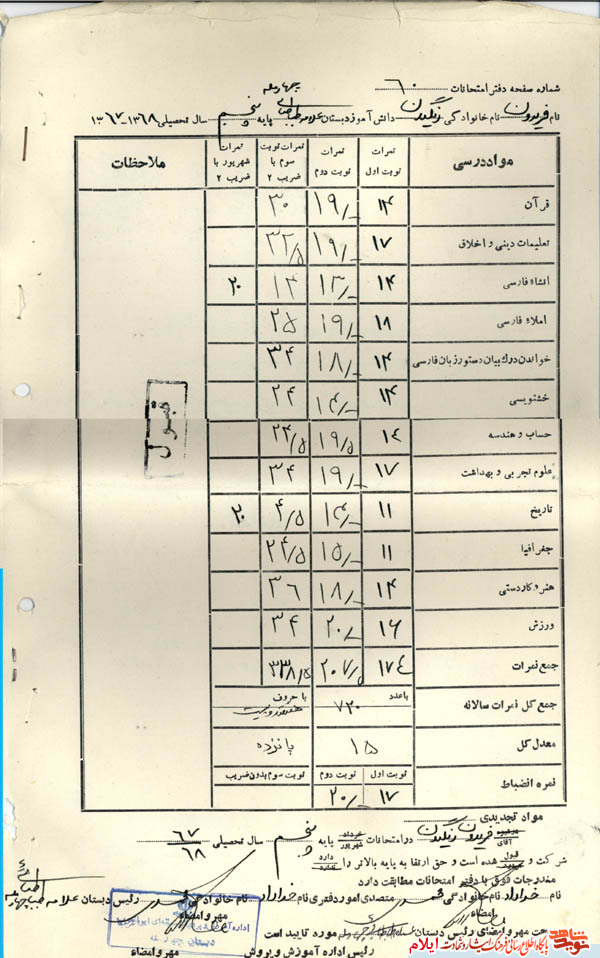 شماره صفحه دفتر امتحانات ۶۰
نام فریدون نام خانوادگی زنگیدن دانش آموز دبستان علامه طباطبائی چهارمله پایه پنجم سال تحصیلی ۱۳۶۸-۱۳۶۷
مواد درسی نمرات نوبت اول نمرات نوبت دوم نمرات نوبت سوم با ضریب ۲ نمرات شهریور با ضریب ۲ ملاحظات
قرآن ۱۴ ۱۹/- ۳۰
تعلیمات دینی و اخلاق ۱۷ ۱۹/- ۳۲/۵
انشاء فارسی ۱۴ ۱۳/- ۱۴ ۲۰
املاء فارسی ۱۸ ۱۹/- ۲۵
خواندن درک بیان دستور زبان فارسی ۱۴ ۱۸/- ۳۴
خشنویسی ۱۴ ۱۴/- ۲۴
حساب و هندسه ۱۴ ۱۹/۵ ۲۴/۵
علوم تجربی و بهداشت ۱۷ ۱۹/- ۳۴
تاریخ ۱۱ ۱۴/- ۴/۵ ۲۰
جغرافیا ۱۱ ۱۵/- ۲۴/۵
هنر و کاردستی ۱۴ ۱۸/- ۳۶
ورزش ۱۶ ۲۰/- ۳۴
جمع نمرات ۱۷۴ ۲۰۷/۵ ۳۳۸/۵
جمع کل نمرات سالانه باعدد ۷۲۰ با حروف هفتصدو بیست
معدل کل ۱۵ پانزده
نمره انضباط نوبت اول ۱۷ نوبت دوم ۲۰/- نوبت سوم بدون ضریب
قبول
مواد تجدیدی
آقای فریدون زنگیدن در امتحانات خرداد شهریور پایه پنجم سال تحصیلی ۶۷ ۶۸
شرکت و قبول شده است و حق ارتقا به پایه بالاتر را دارد
مندرجات فوق با دفتر امتحانات مطابقت دارد
نام خداداد نام خانوادگی متصدی امور دفتری نام خداداد نام خانوادگی رئیس دبستان علامه طباطبائی
امضاء مهر و امضاء
صحت مهر و امضای رئیس دبستان مورد تایید است
رئیس اداره آموزش و پرورش مهر و امضاء
نوید شاهد
پایگاه اطلاع رسانی فرهنگ ایثار و شهادت ایلام